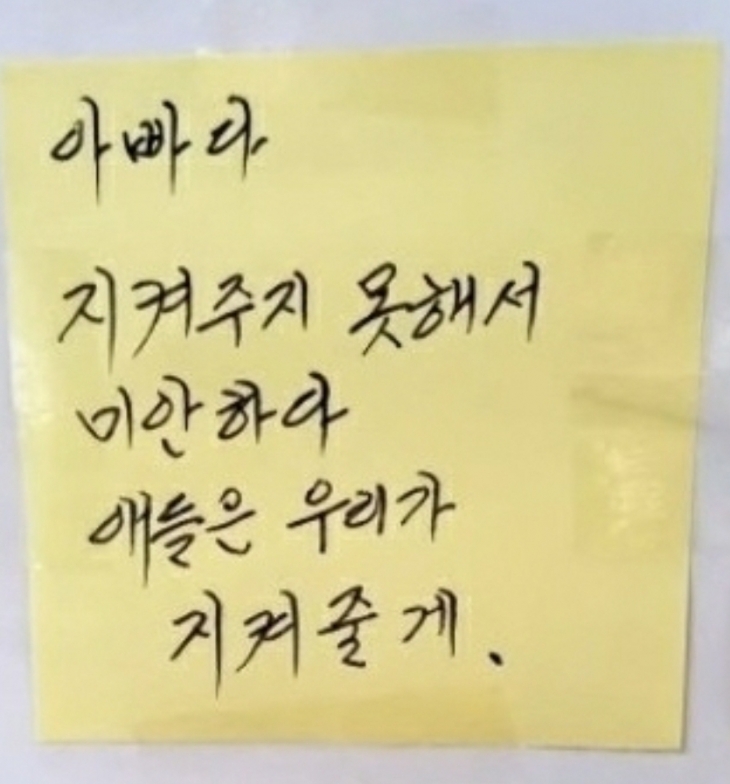 아빠다.
지켜주지 못해서
미안하다
애들은 우리가
지켜줄게.